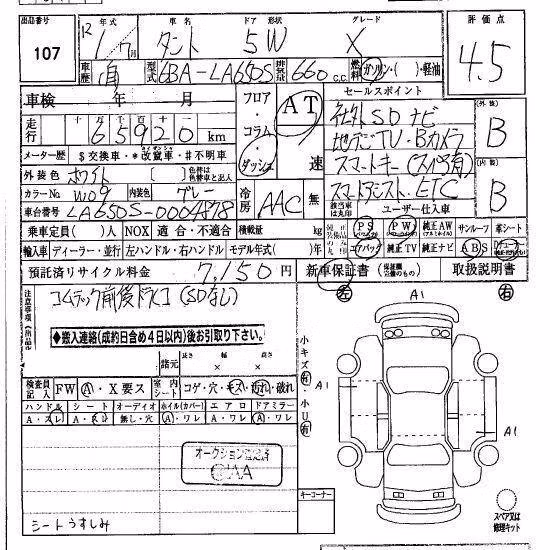 出品番号 年式 車名 ドア 形状 グレード 評価点
107 R1年7月 タント 5W X 4.5
車歴 自 型式 6BA-LA650S 排気量 660 c.c. 燃料 ガソリン・( )・軽油
車検 年 月 フロア・コラム・ダッシュ AT 速 セールスポイント
走行 十 万 千 百 十 一
65920 km
社外SDナビ
地デジTV・Bカメラ
外装 B
メーター歴 $交換車・*改竄車・#不明車
スマートキー(スペア有)
外装色 ホワイト 色替車は元色も必ず記入
スマートアシスト ETC
内装 B
カラーNo W09 内装色 グレー 冷房 AAC 無
該当車は丸印 ユーザー仕入車
車台番号 LA650S-0004878
乗車定員( )人 NOX 適合・不適合 積載量 kg PS PW 純正AW サンルーフ 革シート
輸入車 ディーラー・並行 左ハンドル・右ハンドル モデル年式( )年 エアバック 純正TV 純正ナビ ABS
預託済リサイクル料金 7,150円 新車保証書 取扱説明書
注意事項 コムテック前後ドラレコ(SDなし)
左 右
A1
◆搬入連絡(成約日含め4日以内)後お引取り下さい。
諸元 長さ 幅 高さ
小キズ有 小U有
検査員記入 FW A・X要ス 室内シート コゲ・穴・キズ・汚れ・破れ
A1
ハンドル シート オーディオ ホイル(カバー) エアロ ドアミラー
A・スレ A・スレ 無し・穴 A・ワレ A・ワレ A・ワレ
A1
オークション
CAA
キーコーナー
シートうすしみ
スペア又は修理キット